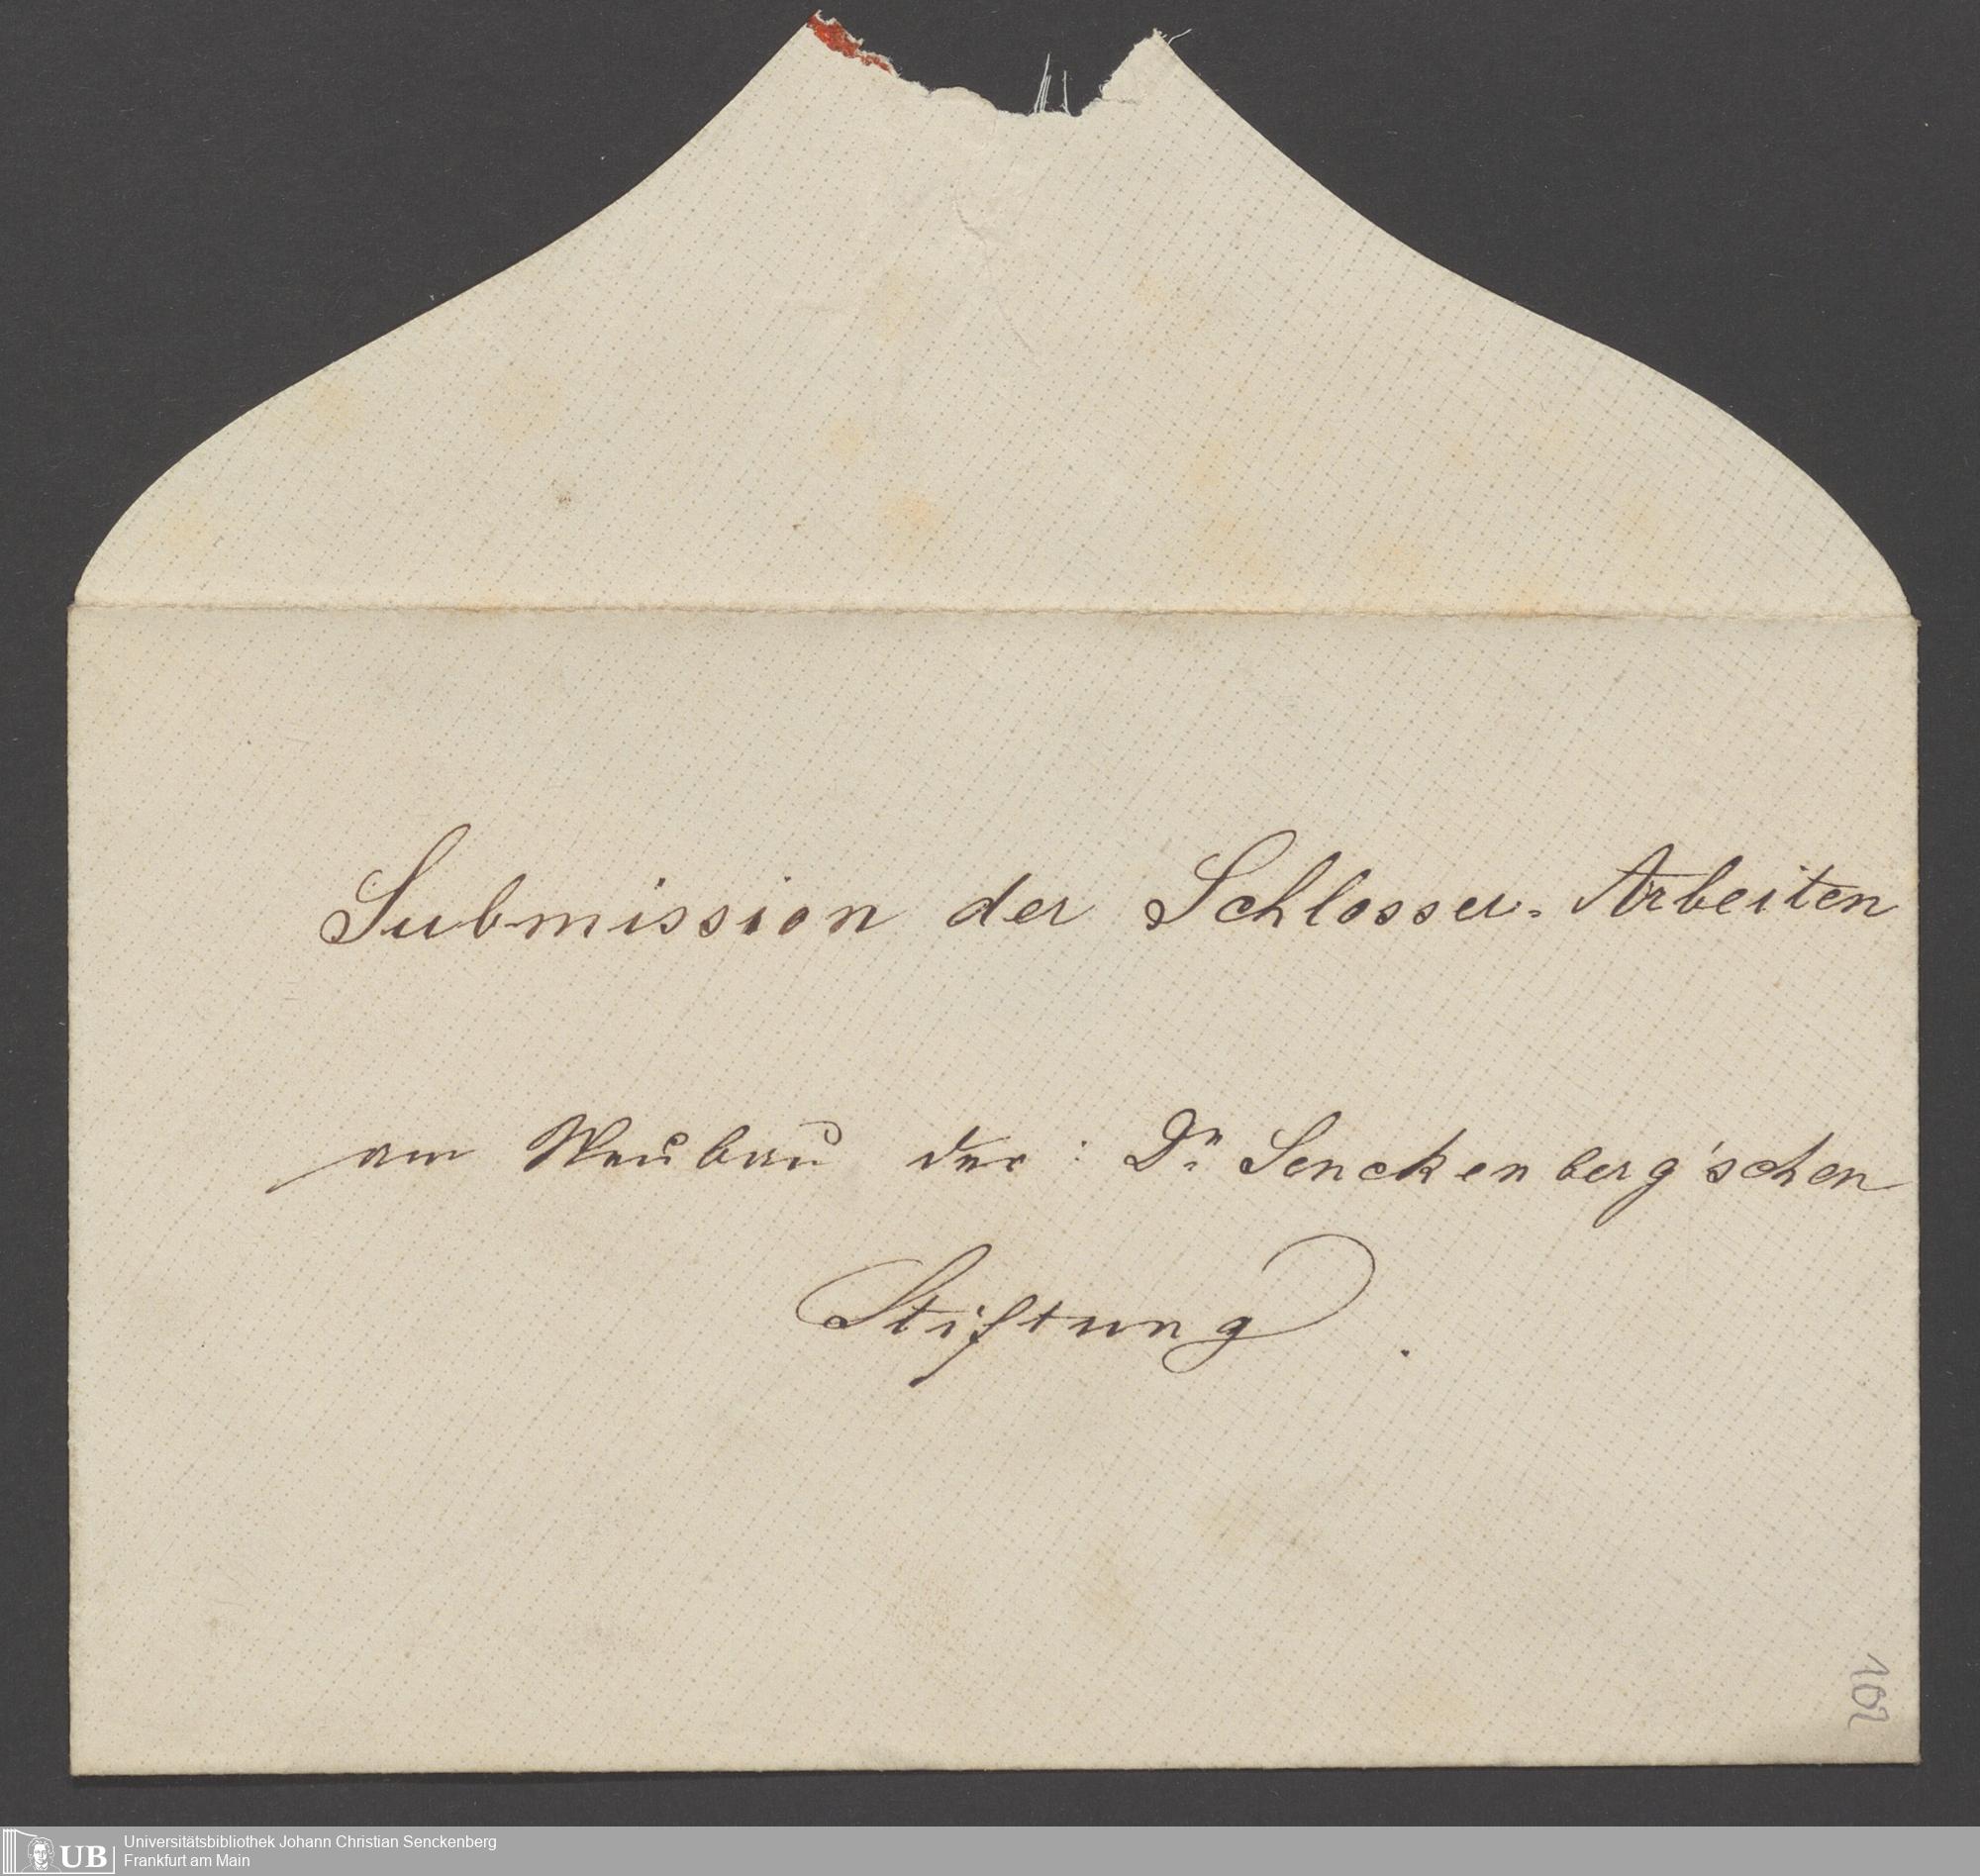 Submission der Schlosser-Arbeiten
am Neubau der: Dr Senckenberg'schen
Stiftung.
102
UB
Universitätsbibliothek Johann Christian Senckenberg
Frankfurt am Main